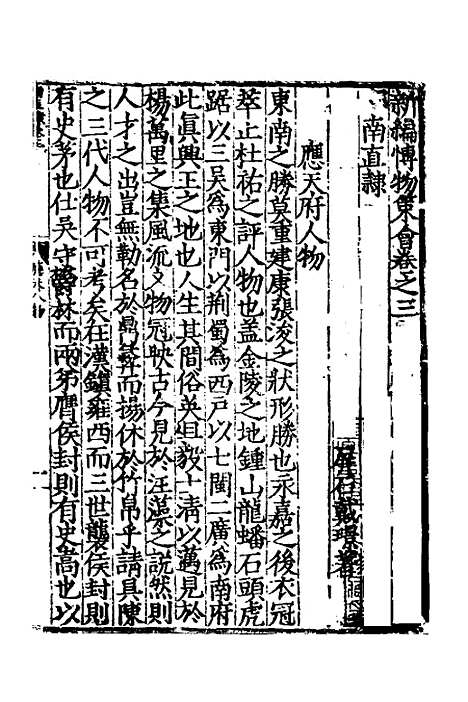 新編博物策會卷之三
屏石戴璟著
南直隸
應天府人物
東南之勝莫重建康張浚之狀形勝也永嘉之後衣冠
萃止杜祐之評人物也盖金陵之地鍾山龍蟠石頭虎
踞以三吳為東門以荆蜀為西戶以七閩二廣為南府
此真興王之地也人生其間俗英且毅士清以邁見於
楊萬里之集風流文物冠映古今見於汪藻之說然則
人才之出豈無勒名於鼎彝而揚休於竹帛乎請具陳
之三代人物不可考矣在漢鎮雍西而三世襲侯封則
有史茅也仕吳守欝林而兩弟膺侯封則有史嵩也以